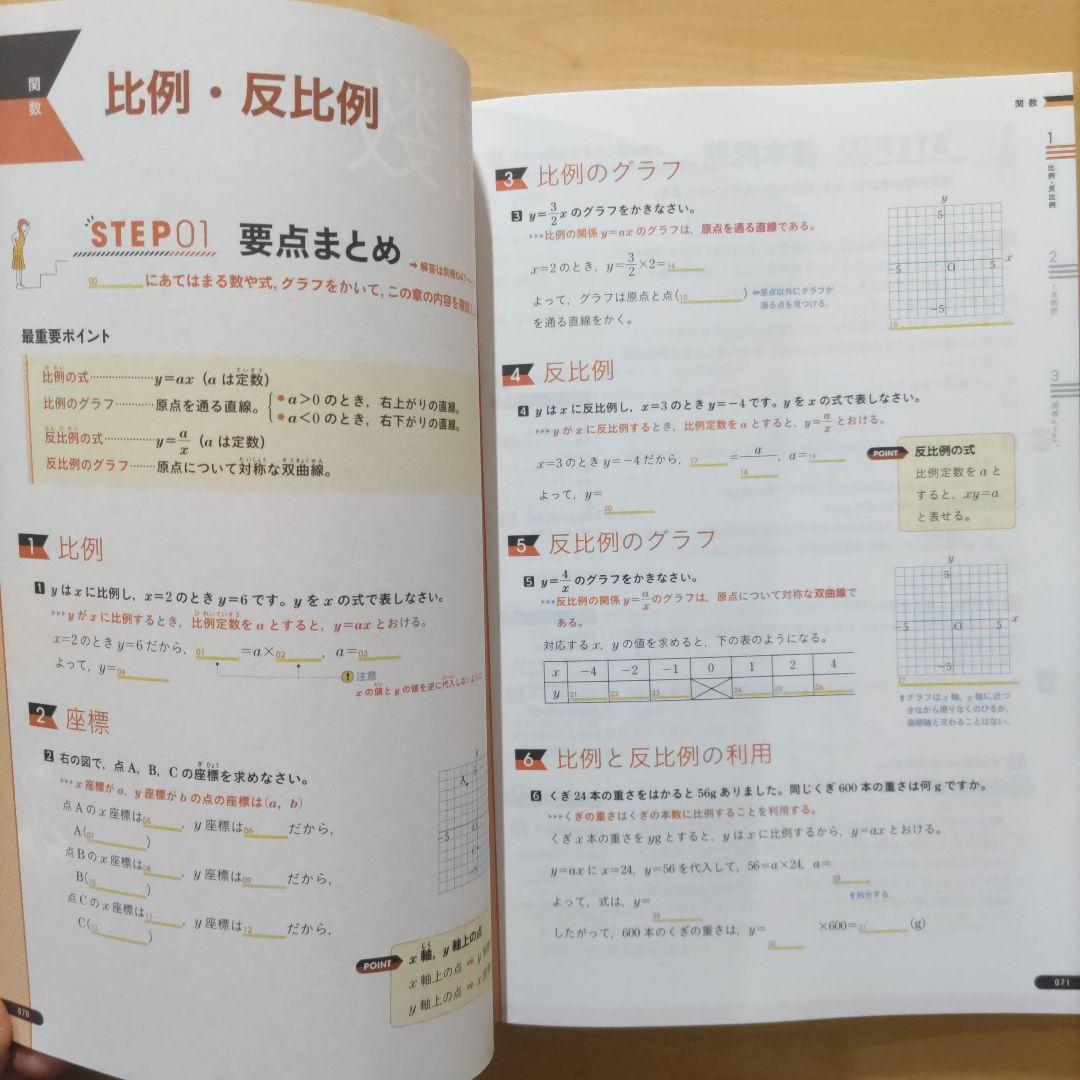 関数
比例・反比例
STEP01 要点まとめ
→解答は別冊047
00 にあてはまる数や式，グラフをかいて，この章の内容を確認し
最重要ポイント
比例の式………………y=ax（aは定数）
比例のグラフ…………原点を通る直線。 ●a>0のとき，右上がりの直線。
●a<0のとき，右下がりの直線。
反比例の式……………y=a/x（aは定数）
反比例のグラフ………原点について対称な双曲線。
1 比例
1 yはxに比例し，x=2のときy=6です。yをxの式で表しなさい。
▸▸▸yがxに比例するとき，比例定数をaとすると，y=axとおける。
x=2のときy=6だから， 01 =a× 02 ，a= 03
よって，y= 04
! 注意
xの値とyの値を逆に代入しないように
2 座標
2 右の図で，点A，B，Cの座標を求めなさい。
▸▸▸x座標がa，y座標がbの点の座標は(a，b)
点Aのx座標は 05 ，y座標は 06 だから，
A( 07 )
点Bのx座標は 08 ，y座標は 09 だから，
B( 10 )
点Cのx座標は 11 ，y座標は 12 だから，
C( 13 )
A
5
-5
O
C
POINT x軸，y軸上の点
x軸上の点 ➡ y
y軸上の点 ➡ x
070
関数
1
比例・反比例
2
3
3 比例のグラフ
3 y=3/2xのグラフをかきなさい。
▸▸▸比例の関係y=axのグラフは，原点を通る直線である。
x=2のとき，y=3/2×2= 14
よって，グラフは原点と点( 15 )
を通る直線をかく。
⇐原点以外にグラフが
通る点を見つける。
y
5
-5 O 5 x
-5
16
4 反比例
4 yはxに反比例し，x=3のときy=-4です。yをxの式で表しなさい。
▸▸▸yがxに反比例するとき，比例定数をaとすると，y=a/xとおける。
x=3のときy=-4だから， 17 =a/ 18 ，a= 19
よって，y= 20
POINT 反比例の式
比例定数をaと
すると，xy=a
と表せる。
5 反比例のグラフ
5 y=4/xのグラフをかきなさい。
▸▸▸反比例の関係y=a/xのグラフは，原点について対称な双曲線で
ある。
対応するx，yの値を求めると，下の表のようになる。
x -4 -2 -1 0 1 2 4
y 21 22 23 24 25 26
y
5
-5 O 5 x
-5
27
⇧グラフはx軸，y軸に近づ
きながら限りなくのびるが，
座標軸と交わることはない。
6 比例と反比例の利用
6 くぎ24本の重さをはかると56gありました。同じくぎ600本の重さは何gですか。
▸▸▸くぎの重さはくぎの本数に比例することを利用する。
くぎx本の重さをygとすると，yはxに比例するから，y=axとおける。
y=axにx=24，y=56を代入して，56=a×24，a= 28
⇧約分する。
よって，式は，y= 29
したがって，600本のくぎの重さは，y= 30 ×600= 31 (g)
071